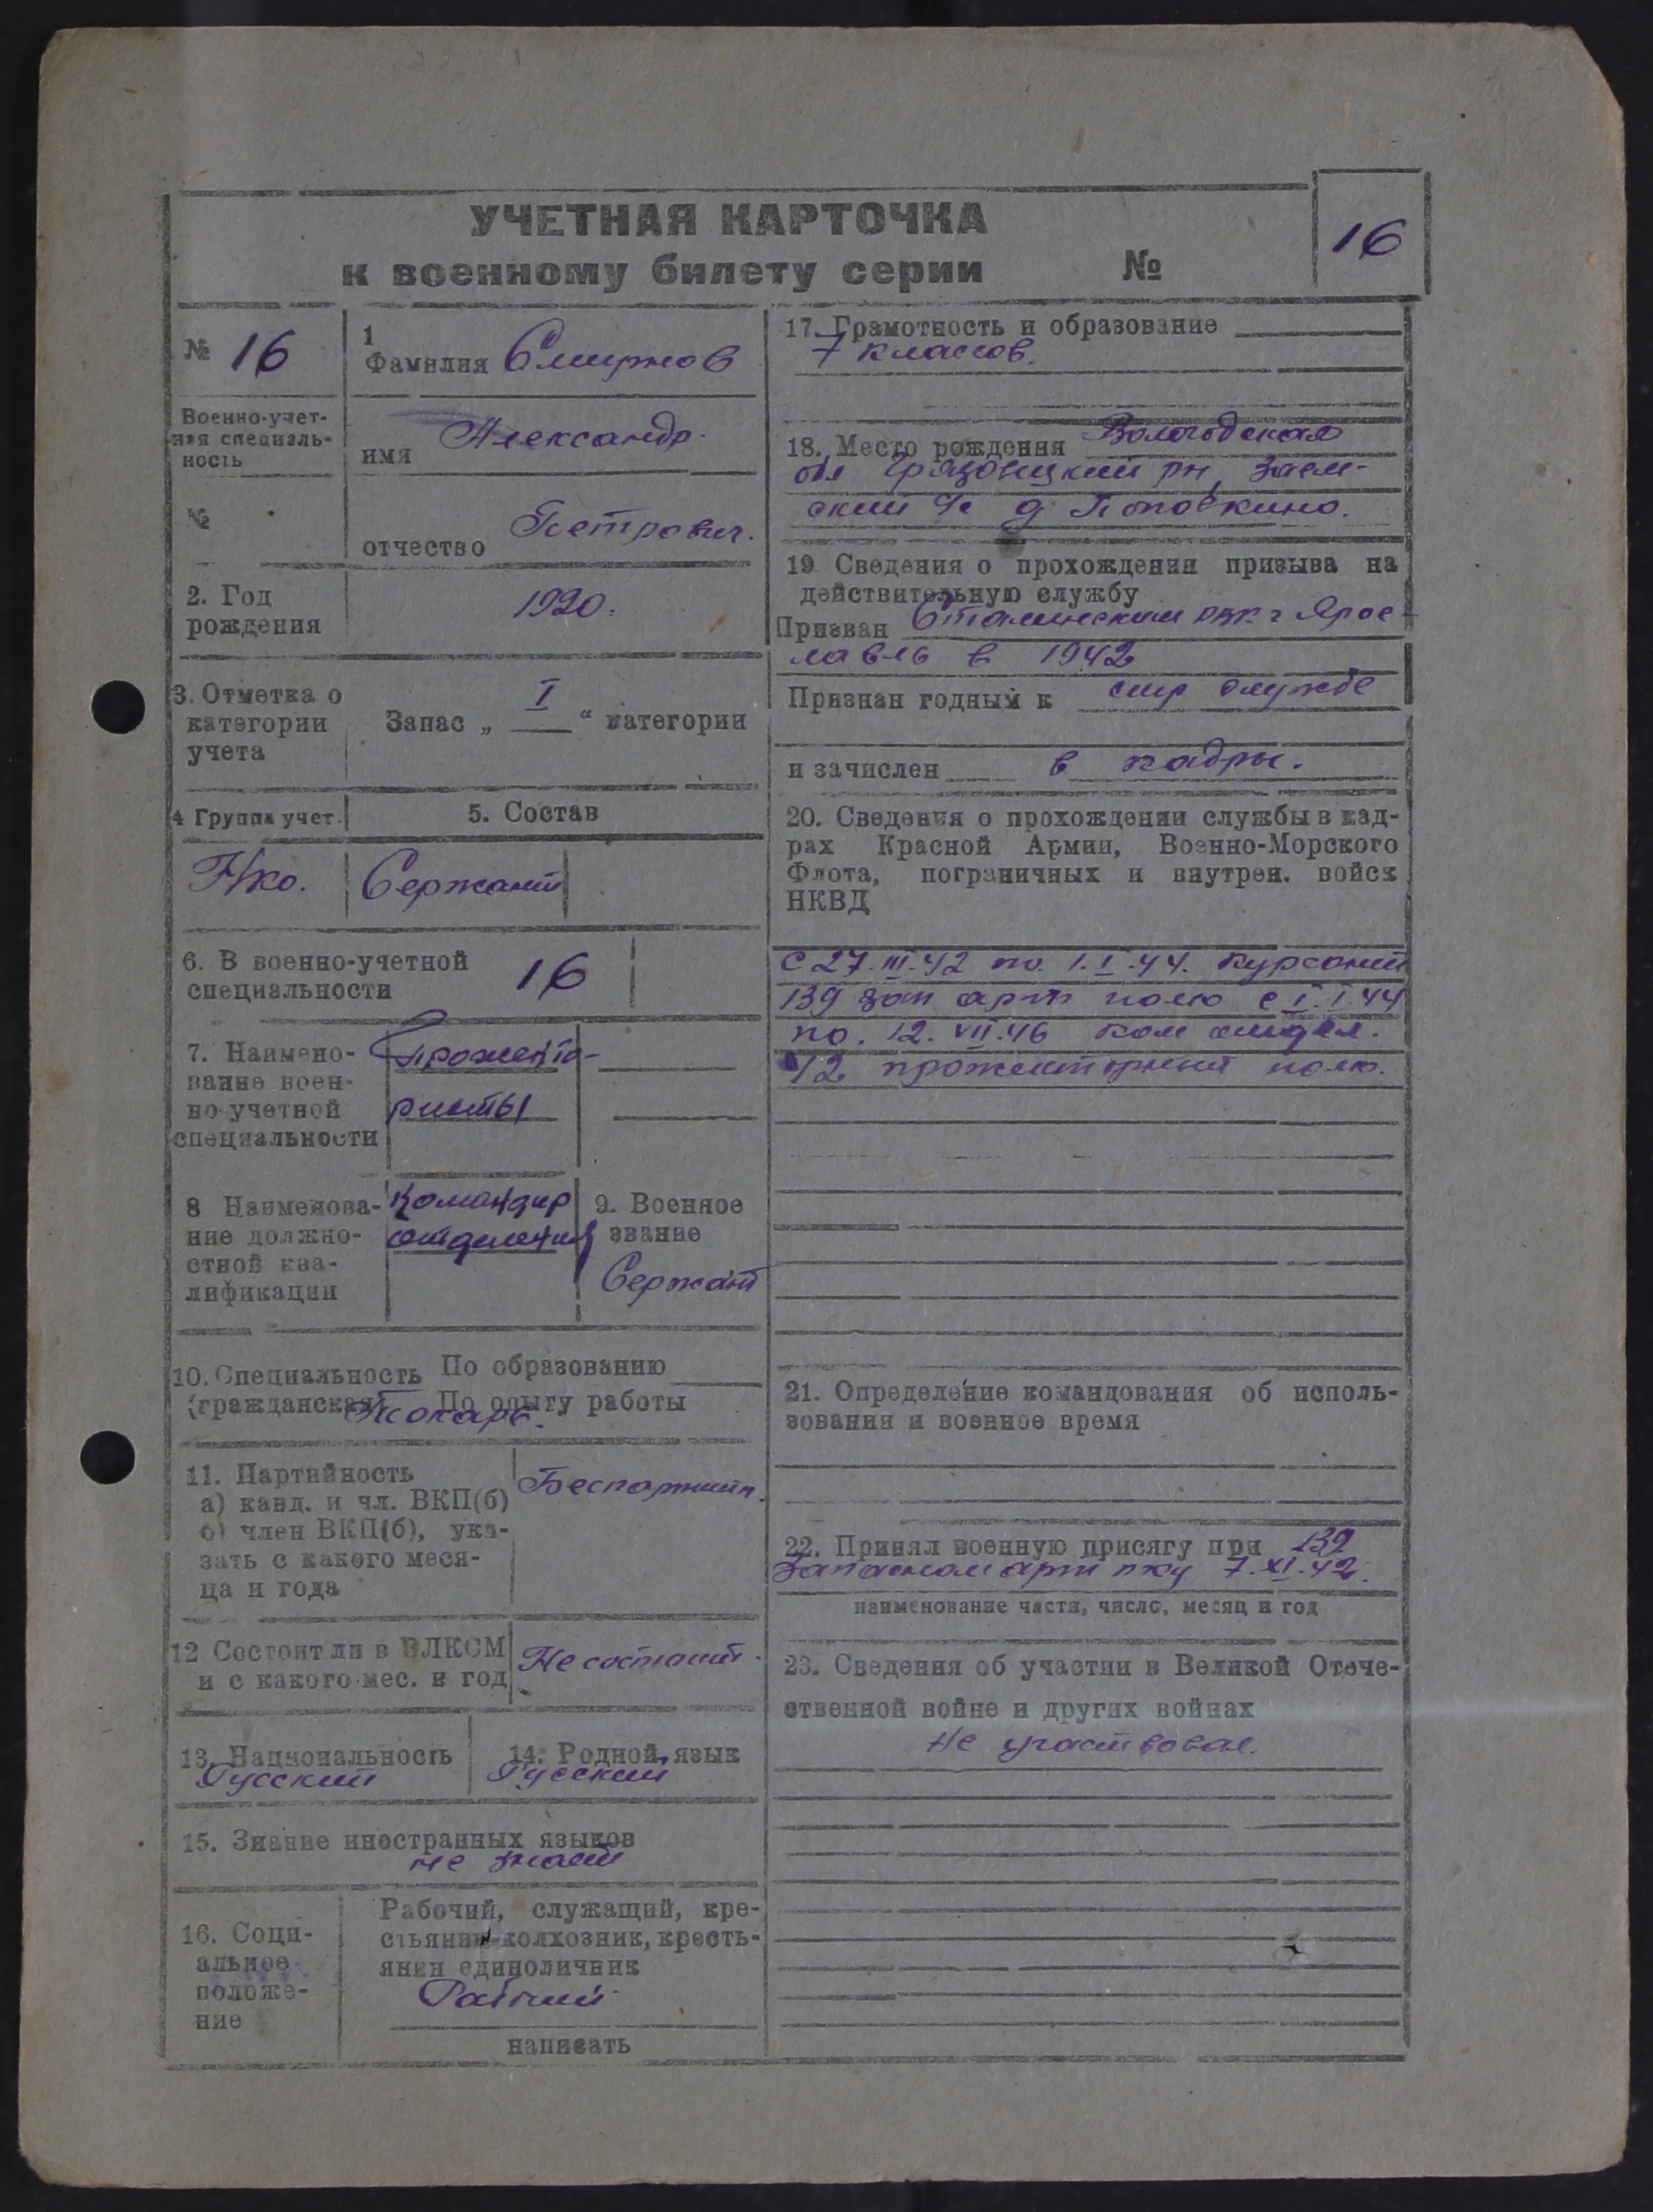 УЧЕТНАЯ КАРТОЧКА
к военному билету серии №
16
№ 16
Военно-учет-
ная специаль-
ность
№
1
Фамилия Смирнов
имя Александр.
отчество Петрович.
2. Год
рождения
1920.
3. Отметка о
категории
учета
Запас „ I “ категории
4 Группа учет.
5. Состав
Нко.
Сержант
6. В военно-учетной
специальности
16
7. Наимено-
вание воен-
но-учетной
специальности
Прожекто-
ристы
8 Наименова-
ние должно-
стной ква-
лификации
Командир
отделения
9. Военное
звание
Сержант
10. Специальность По образованию
(гражданская) По опыту работы
Токарь.
11. Партийность
а) канд. и чл. ВКП(б)
б) член ВКП(б), ука-
зать с какого меся-
ца и года
Беспартийн.
12 Состоит ли в ВЛКСМ
и с какого мес. и год
Не состоит.
13. Национальность
Русский
14. Родной язык
Русский
15. Знание иностранных языков
не знает
16. Соци-
альное
положе-
ние
Рабочий, служащий, кре-
стьянин-колхозник, кресть-
янин единоличник
Рабочий
написать
17. Грамотность и образование
7 классов.
18. Место рождения Вологодская
обл Грязовецкий рн, Заем-
ский с/с д Поповкино.
19 Сведения о прохождении призыва на
действительную службу
Призван Сталинским рвк г Яросл-
лавль в 1942
Признан годным к стр службе
и зачислен в кадры.
20. Сведения о прохождении службы в кад-
рах Красной Армии, Военно-Морского
Флота, пограничных и внутрен. войск
НКВД
с 27.III.42 по. 1.I.44. курсант
139 зап арт полк с 1.I.44
по. 12.VII.46 ком отдел.
42 прожекторный полк.
21. Определение командования об исполь-
зовании и военное время
22. Принял военную присягу при 139
Запасном арт пку 7.XI.42.
наименование части, число, месяц и год
23. Сведения об участии в Великой Отече-
ственной войне и других войнах
Не участвовал.